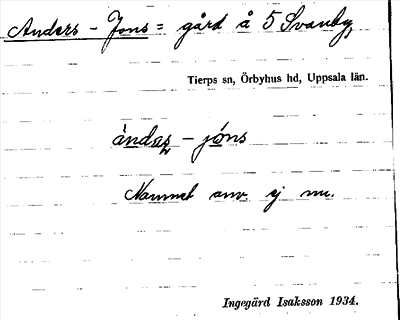 Anders-Jons= gård å 5 Svanby
Tierps sn, Örbyhus hd, Uppsala län.
àndaʂ-jóns
Namnet anv. ej nu.
Ingegärd Isaksson 1934.